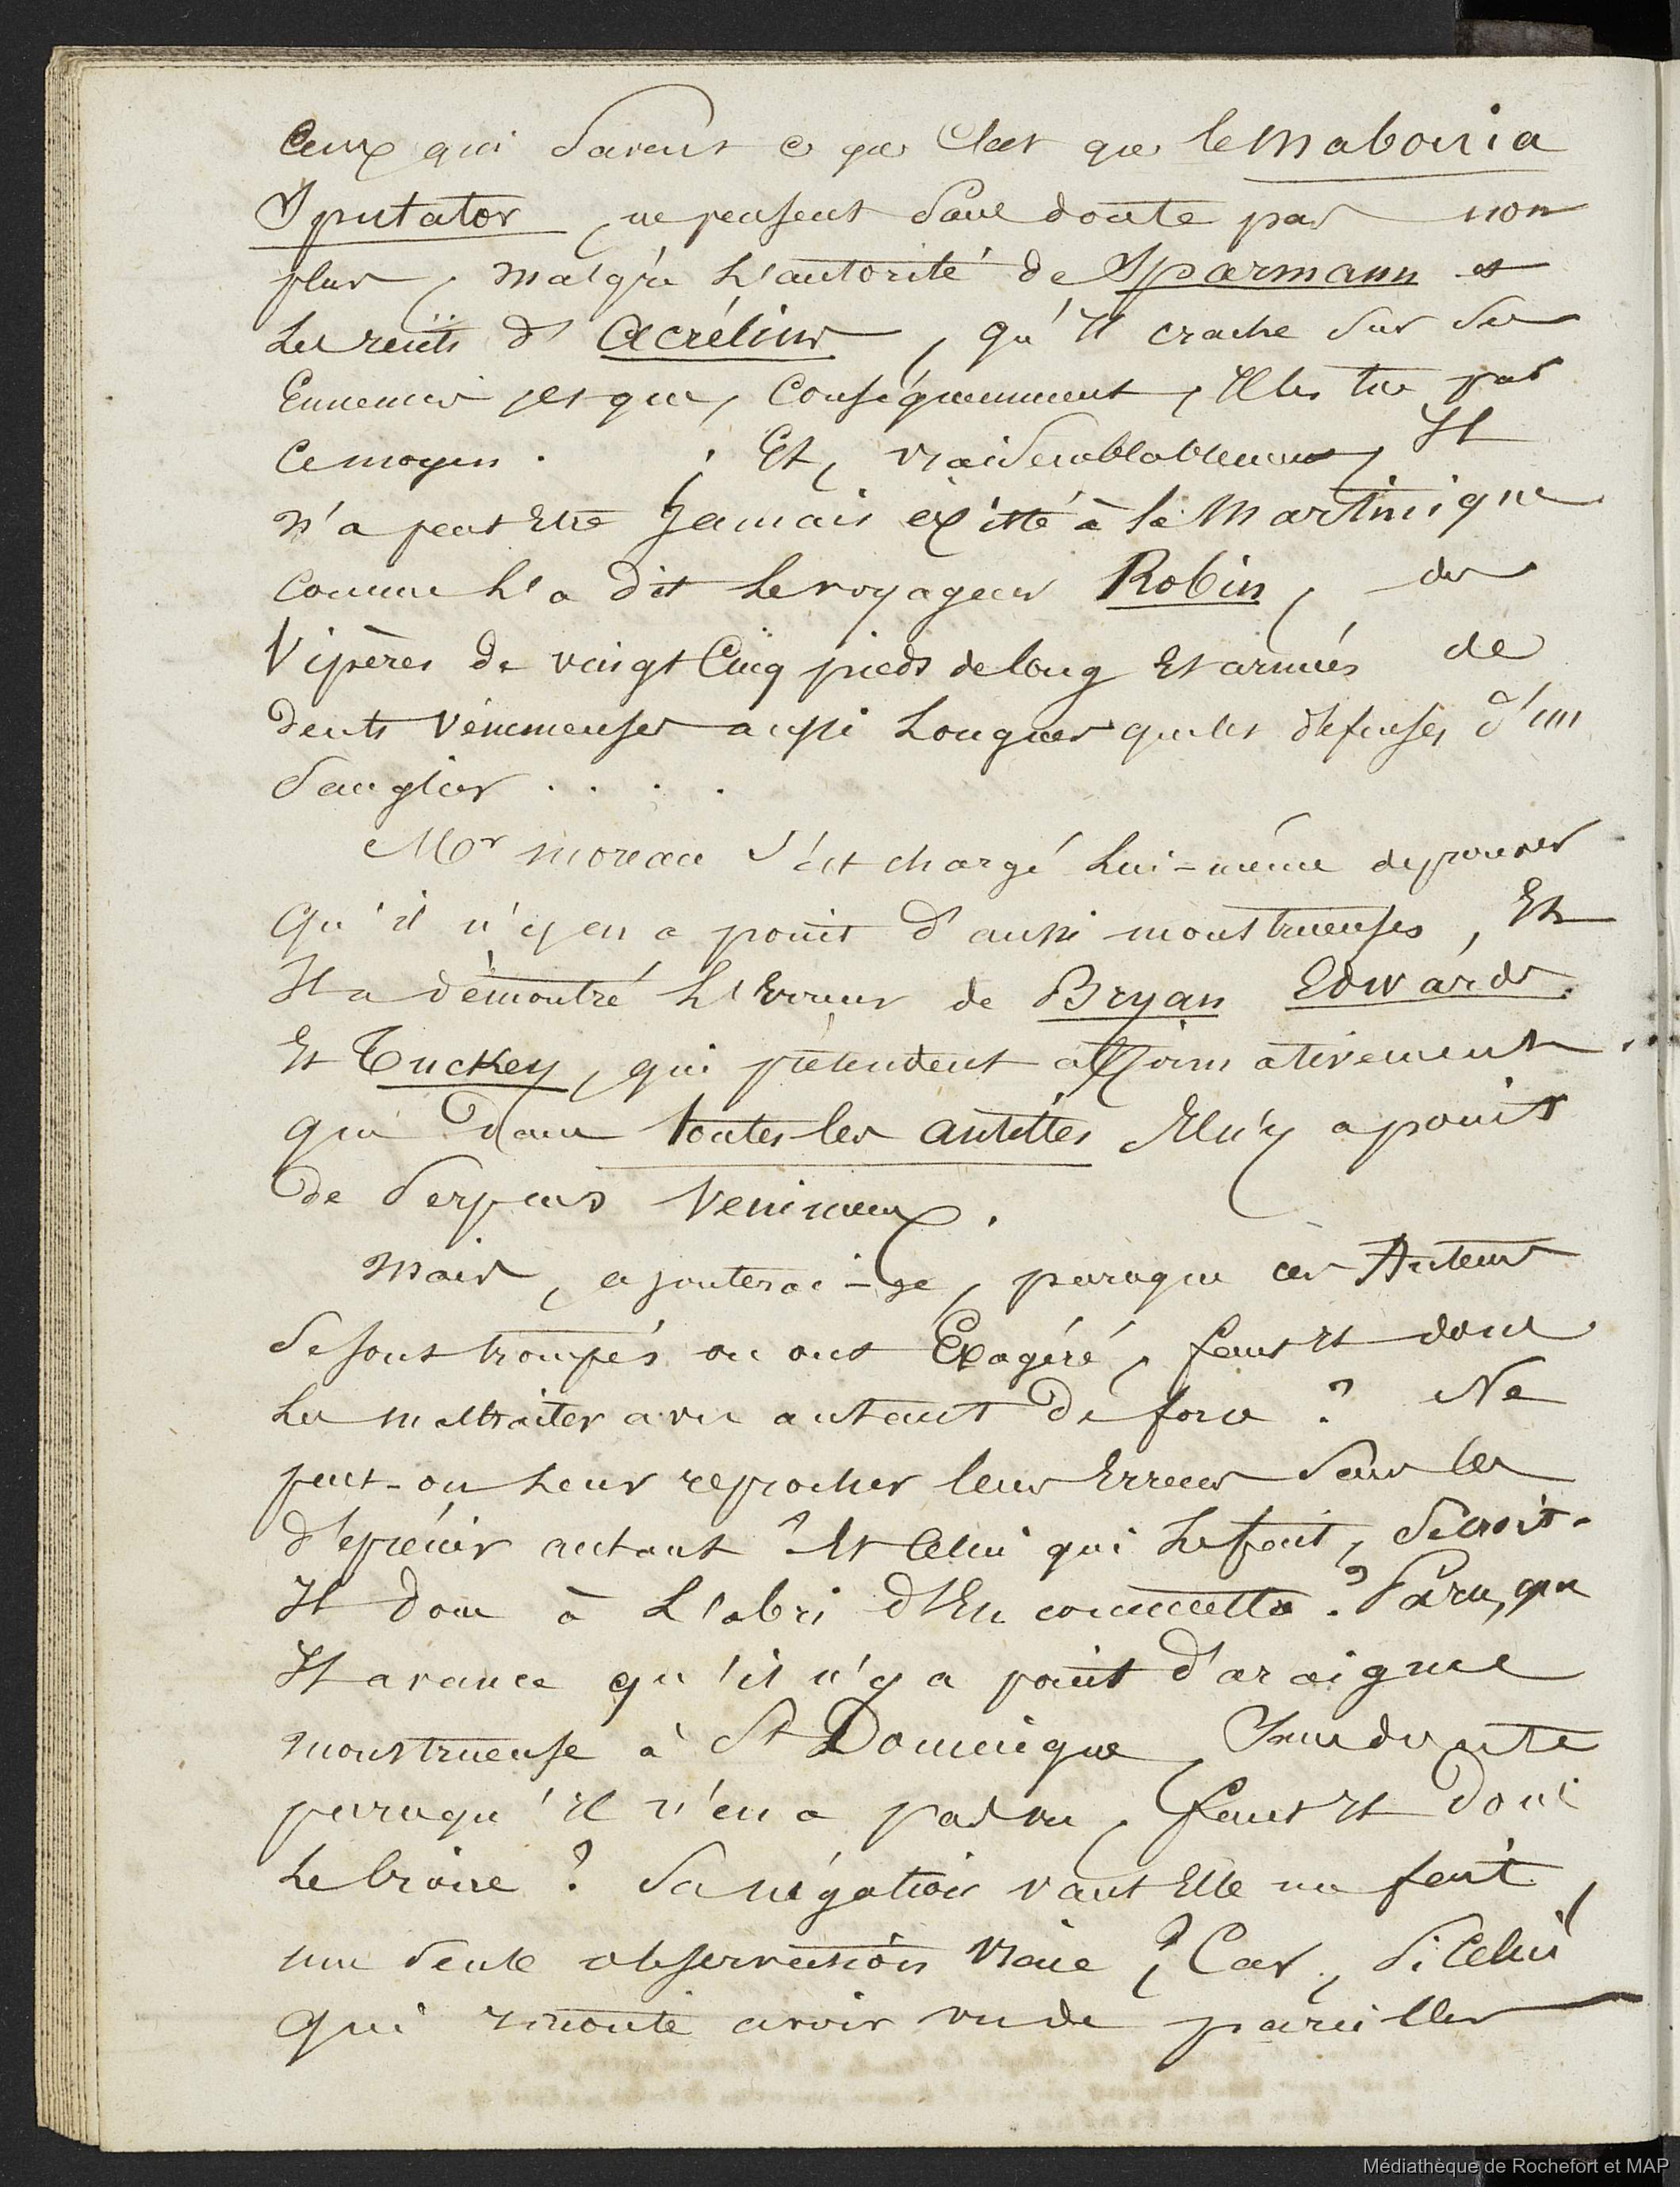 Ceux qui Savent ce que C'est que le Mabouia
Sputator, ne pensent Sans doute pas non
plus, Malgré L'autorité de Sparmann et
Les récits d'Acrélius, qu'Il crache Sur Ses
Ennemis, et que, Conséquemment, Il les tue par
Ce moyen. ; Et, vraisemblablement, Il
N'a peut Etre Jamais éxisté à la Martinique
Comme L'a Dit Le voyageur Robin, des
Vipères de vingt Cinq pieds de long Et armés de
Dents vénimeuses aussi Longues que les défenses d'un
Sanglier . . . .
Mr Moreau S'est chargé Lui-même de prouver
qu'il n'y en a point d'aussi monstrueuses, Et
Il a démontré L'Erreur de Bryan Edwards
Et Tuckey, qui prétendent affirmativement
que Dans toutes les antilles Il n'y a point
de Serpens Venimeux.
Mais, ajouterai-je, parceque ces Auteurs
Se sont trompés ou ont Exagéré, faut Il donc
Les maltraiter avec autant De force ? Ne
peut-on Leur reprocher leurs Erreurs Sans les
déprécier autant ? Et Celui qui Le fait, Se croit-
Il donc à L'abri d'En commettre ? Parce, que
Il avance qu'il n'y a point d'araignée
monstrueuse à St Domingue, Sans doute
parcequ'Il n'en a pas vu, faut Il Donc
Le croire ? Sa négation vaut Elle un fait,
une Seule observation vraie ? Car, Si Celui
qui raconte avoir vu de pareilles
Médiathèque de Rochefort et MAP